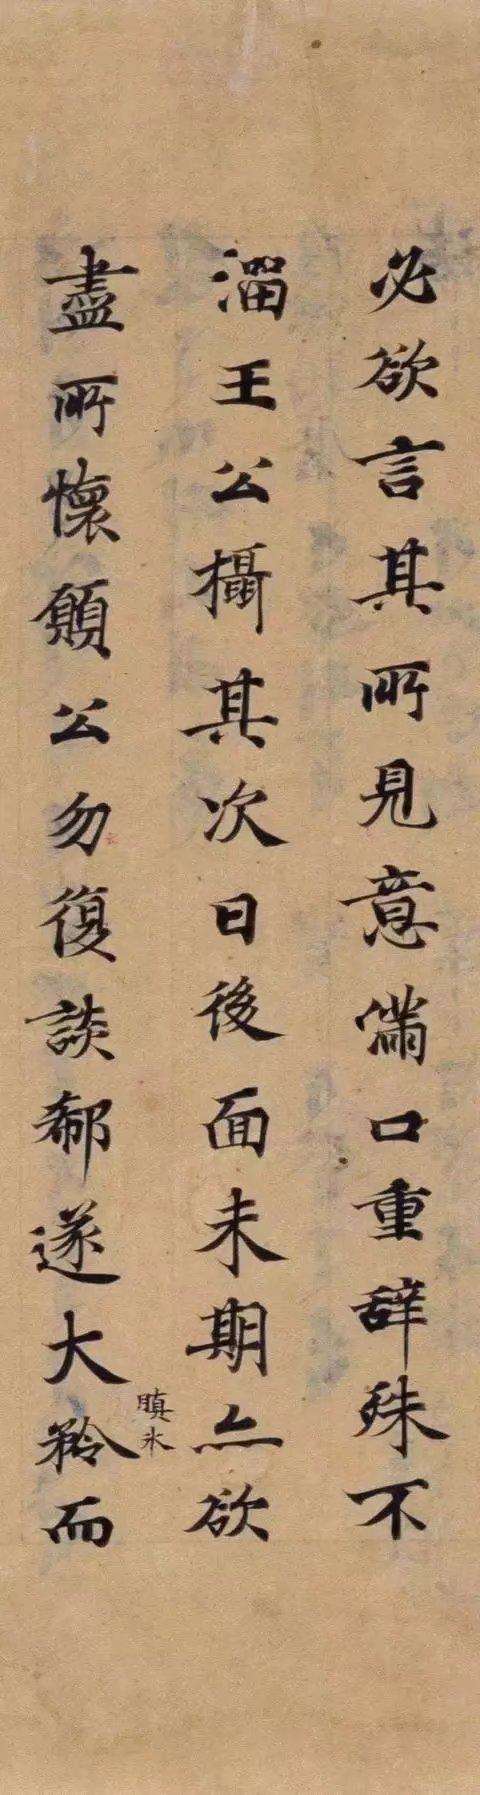 必欲言其所見意滿口重辭殊不
溜王公攝其次曰後面未期亦欲
盡所懷願公勿復談郗遂大矜而
瞋氷